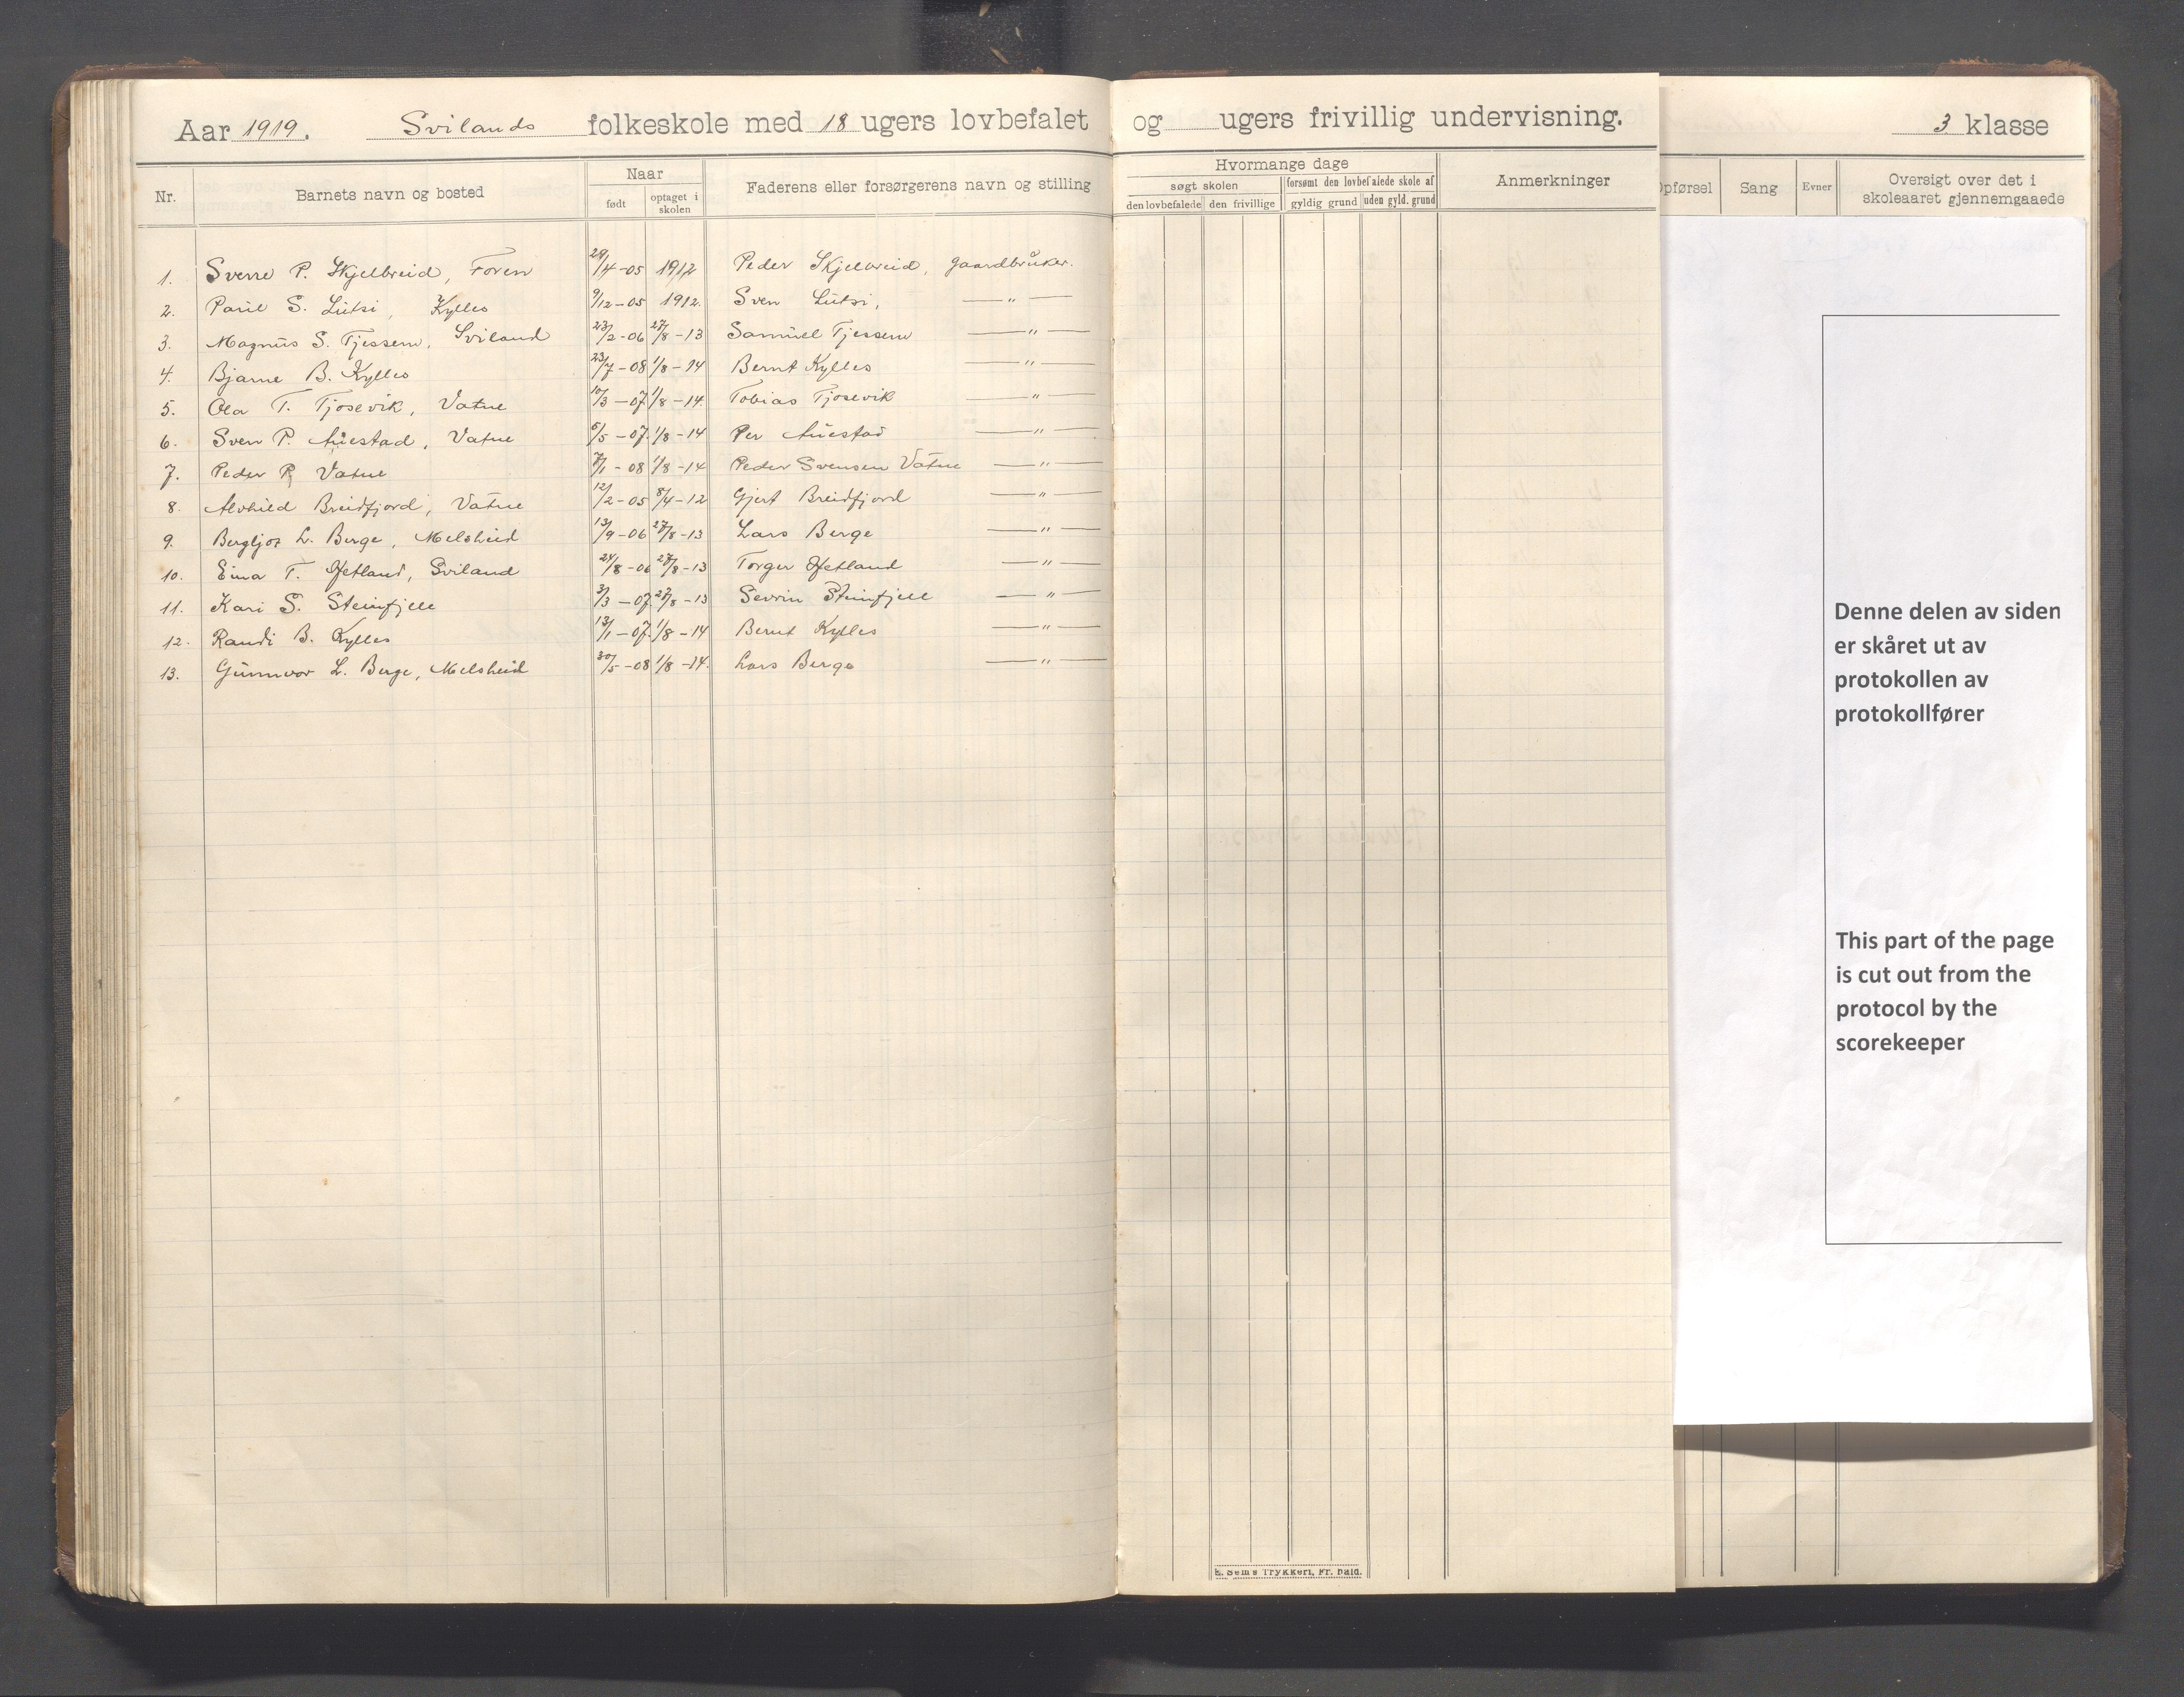 Aar 1919. Svilands folkeskole med 18 ugers lovbefalet og ugers frivillig undervisning. 3 klasse
Nr. Barnets navn og bosted Naar født optaget i skolen Faderens eller forsørgerens navn og stilling
Hvormange dage
søgt skolen forsømt den lovbefalede skole af
den lovbefalede den frivillige gyldig grund uden gyld. grund
Anmerkninger
Opførsel Sang Evner Oversigt over det i skoleaaret gjennemgaaede
1. Sverre P. Skjelbreid, Foren 29/4-05 1912 Peder Skjelbreid, gaardbruker.
2. Paul S. Lutsi, Kylles 9/12-05 1912. Sven Lutsi, —〃—
3. Magnus S. Tjessem, Sviland 23/2-06 27/8-13 Samuel Tjessem —〃—
4. Bjarne B. Kylles 23/7-08 1/8-14 Bernt Kylles —〃—
5. Ola T. Tjosevik, Vatne 10/3-07 1/8-14. Tobias Tjosevik —〃—
6. Sven P. Auestad, Vatne 6/5-07. 1/8-14 Per Auestad —〃—
7. Peder P. Vatne 7/1-08 1/8-14 Peder Svensen Vatne —〃—
8. Alvhild Breidfjord, Vatne 12/2-05 8/4-12 Gjert Breidfjord —〃—
9. Bergljot L. Berge, Melsheid 13/9-06 27/8-13 Lars Berge —〃—
10. Eina T. Hetland, Sviland 24/8-06 27/8-13 Torger Hetland —〃—
11. Kari S. Steinfjell 3/3-07. 27/8-13 Sevrin Steinfjell —〃—
12. Randi B. Kylles 13/1-07. 1/8-14 Bernt Kylles —〃—
13. Gunnvor L. Berge, Melsheid 30/5-08 1/8-14. Lars Berge —〃—
Denne delen av siden
er skåret ut av
protokollen av
protokollfører
This part of the page
is cut out from the
protocol by the
scorekeeper
E. Sem's Trykkeri, Fr. hald.